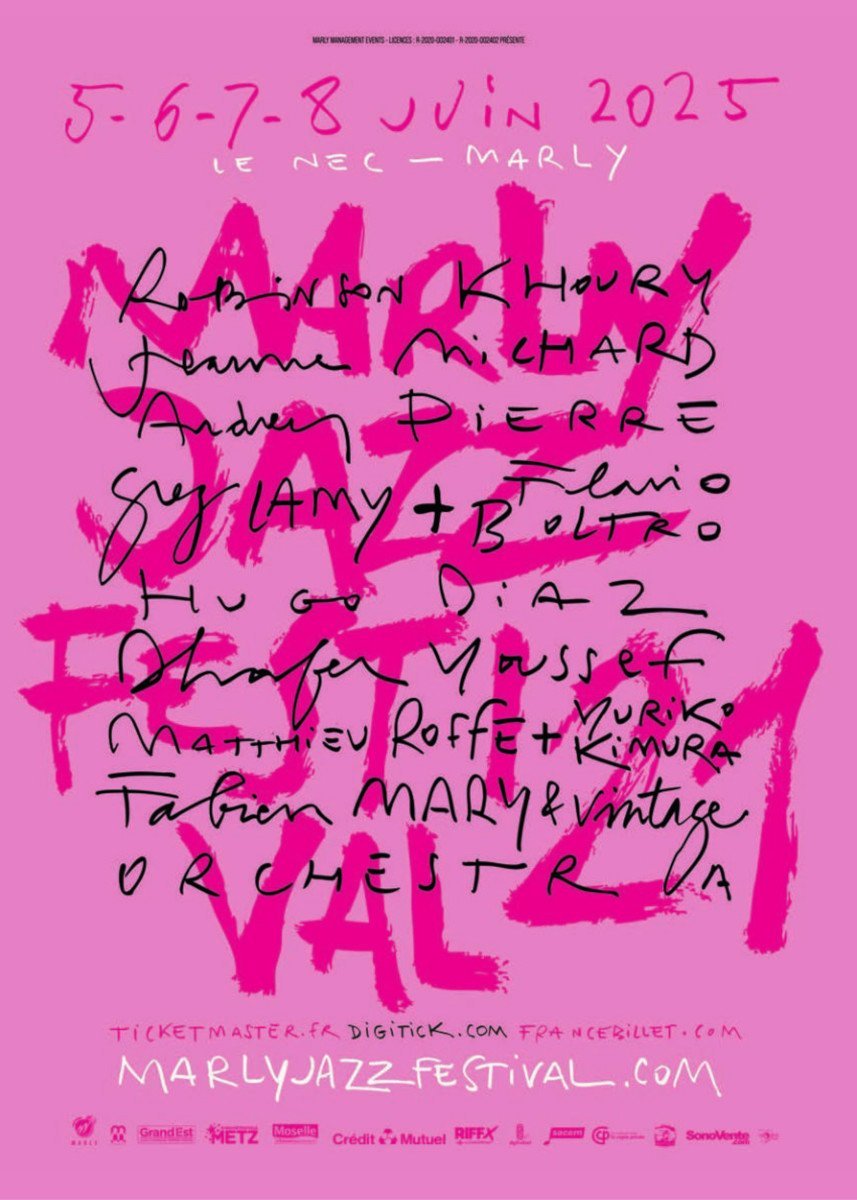 MARLY MANAGEMENT EVENTS - LICENCES : R-2020-002401 - R-2020-002402 PRÉSENTE
5-6-7-8 JUIN 2025
LE NEC – MARLY
MARLY
JAZZ
FESTI
VAL
21
Robinson KHOURY
Jeanne MICHARD
Audrey PIERRE
Greg LAMY + Flavio BOLTRO
HUGO DIAZ
Dhafer Youssef
MATTHIEU ROFFE + YURIKO KIMURA
Fabien MARY & vintage
ORCHESTRA
TICKETMASTER.FR DIGITICK.COM FRANCEBILLET.COM
MARLYJAZZFESTIVAL.COM
MARLY GrandEst METZ Moselle Crédit Mutuel RIFFX sacem SonoVente.com